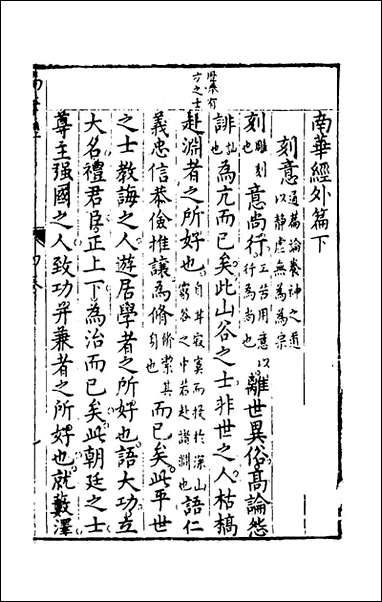 南華經外篇下
刻意通篇論養神之道以静虛無為為宗
刻雕刻也意尚行工苦用意以行為尚也離世異俗高論怨
誹訕也為亢而已矣此山谷之士非世之人枯槁
赴淵者之所好也自甘寂寞而投於深山窮谷之中若赴諸淵也語仁
義忠信恭儉推讓為脩脩絜其自也而已矣此平世
之士教誨之人遊居學者之所好也語大功立
大名禮君臣正上下為治而已矣此朝廷之士
尊主强國之人致功并兼者之所好也就藪澤
歷叙有方之士